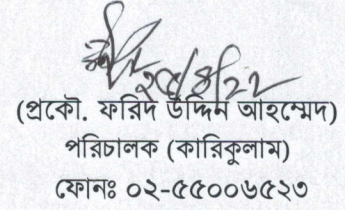 ২৫/৪/২২
(প্রকৌ. ফরিদ উদ্দিন আহম্মেদ)
পরিচালক (কারিকুলাম)
ফোনঃ ০২-৫৫০০৬৫২৩